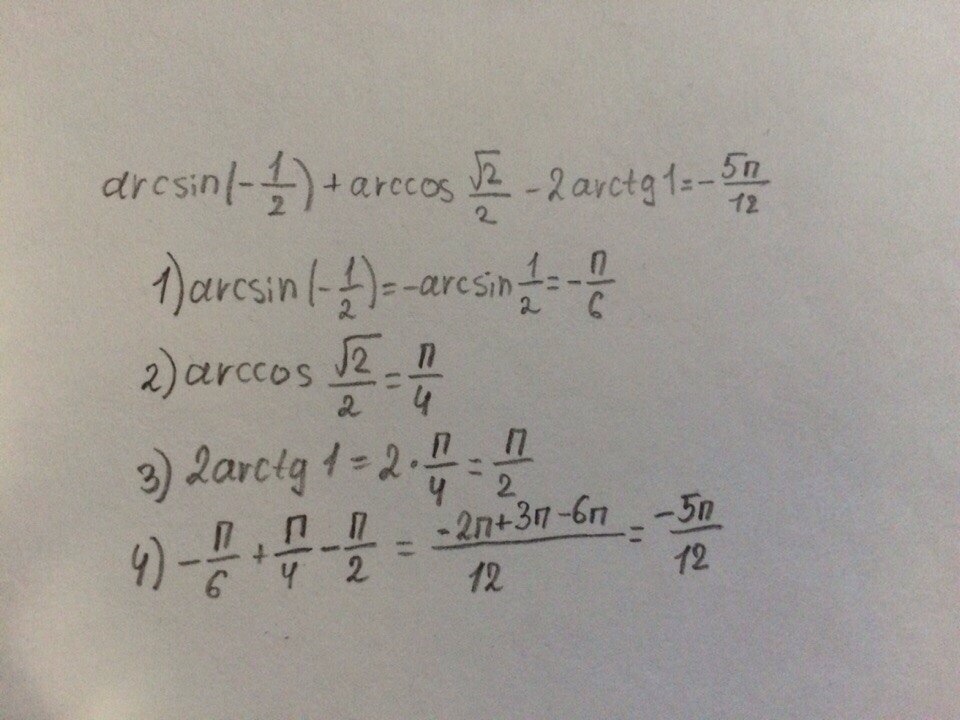 arcsin(-1/2) + arccos √2/2 - 2arctg1 = -5π/12
1) arcsin(-1/2) = -arcsin 1/2 = -π/6
2) arccos √2/2 = π/4
3) 2arctg 1 = 2·π/4 = π/2
4) -π/6 + π/4 - π/2 = (-2π+3π-6π)/12 = -5π/12